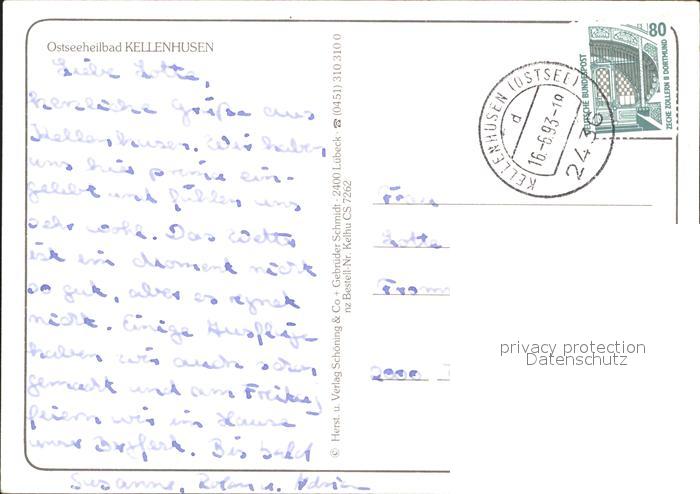 Ostseeheilbad KELLENHUSEN
Liebe Lotte,
herzliche Grüße aus
Kellenhusen. Wir haben
uns hier prima ein-
gelebt und fühlen uns
sehr wohl. Das Wetter
ist im Moment nicht
so gut, aber es regnet
nicht. Einige Ausflüge
haben wir auch schon
gemacht und am Freitag
feiern wir im Hause
unser Bergfest. Bis bald
Susanne,
© Herst. u. Verlag Schöning & Co + Gebrüder Schmidt · 2400 Lübeck · ☎ (0451) 310 310 0
nz Bestell-Nr. Kelhu CS 7262
KELLENHUSEN (OSTSEE)
d
16.-6.93-18
80
DEUTSCHE BUNDESPOST
ZECHE ZOLLERN II DORTMUND
Frau
Lotte
privacy protection
Datenschutz